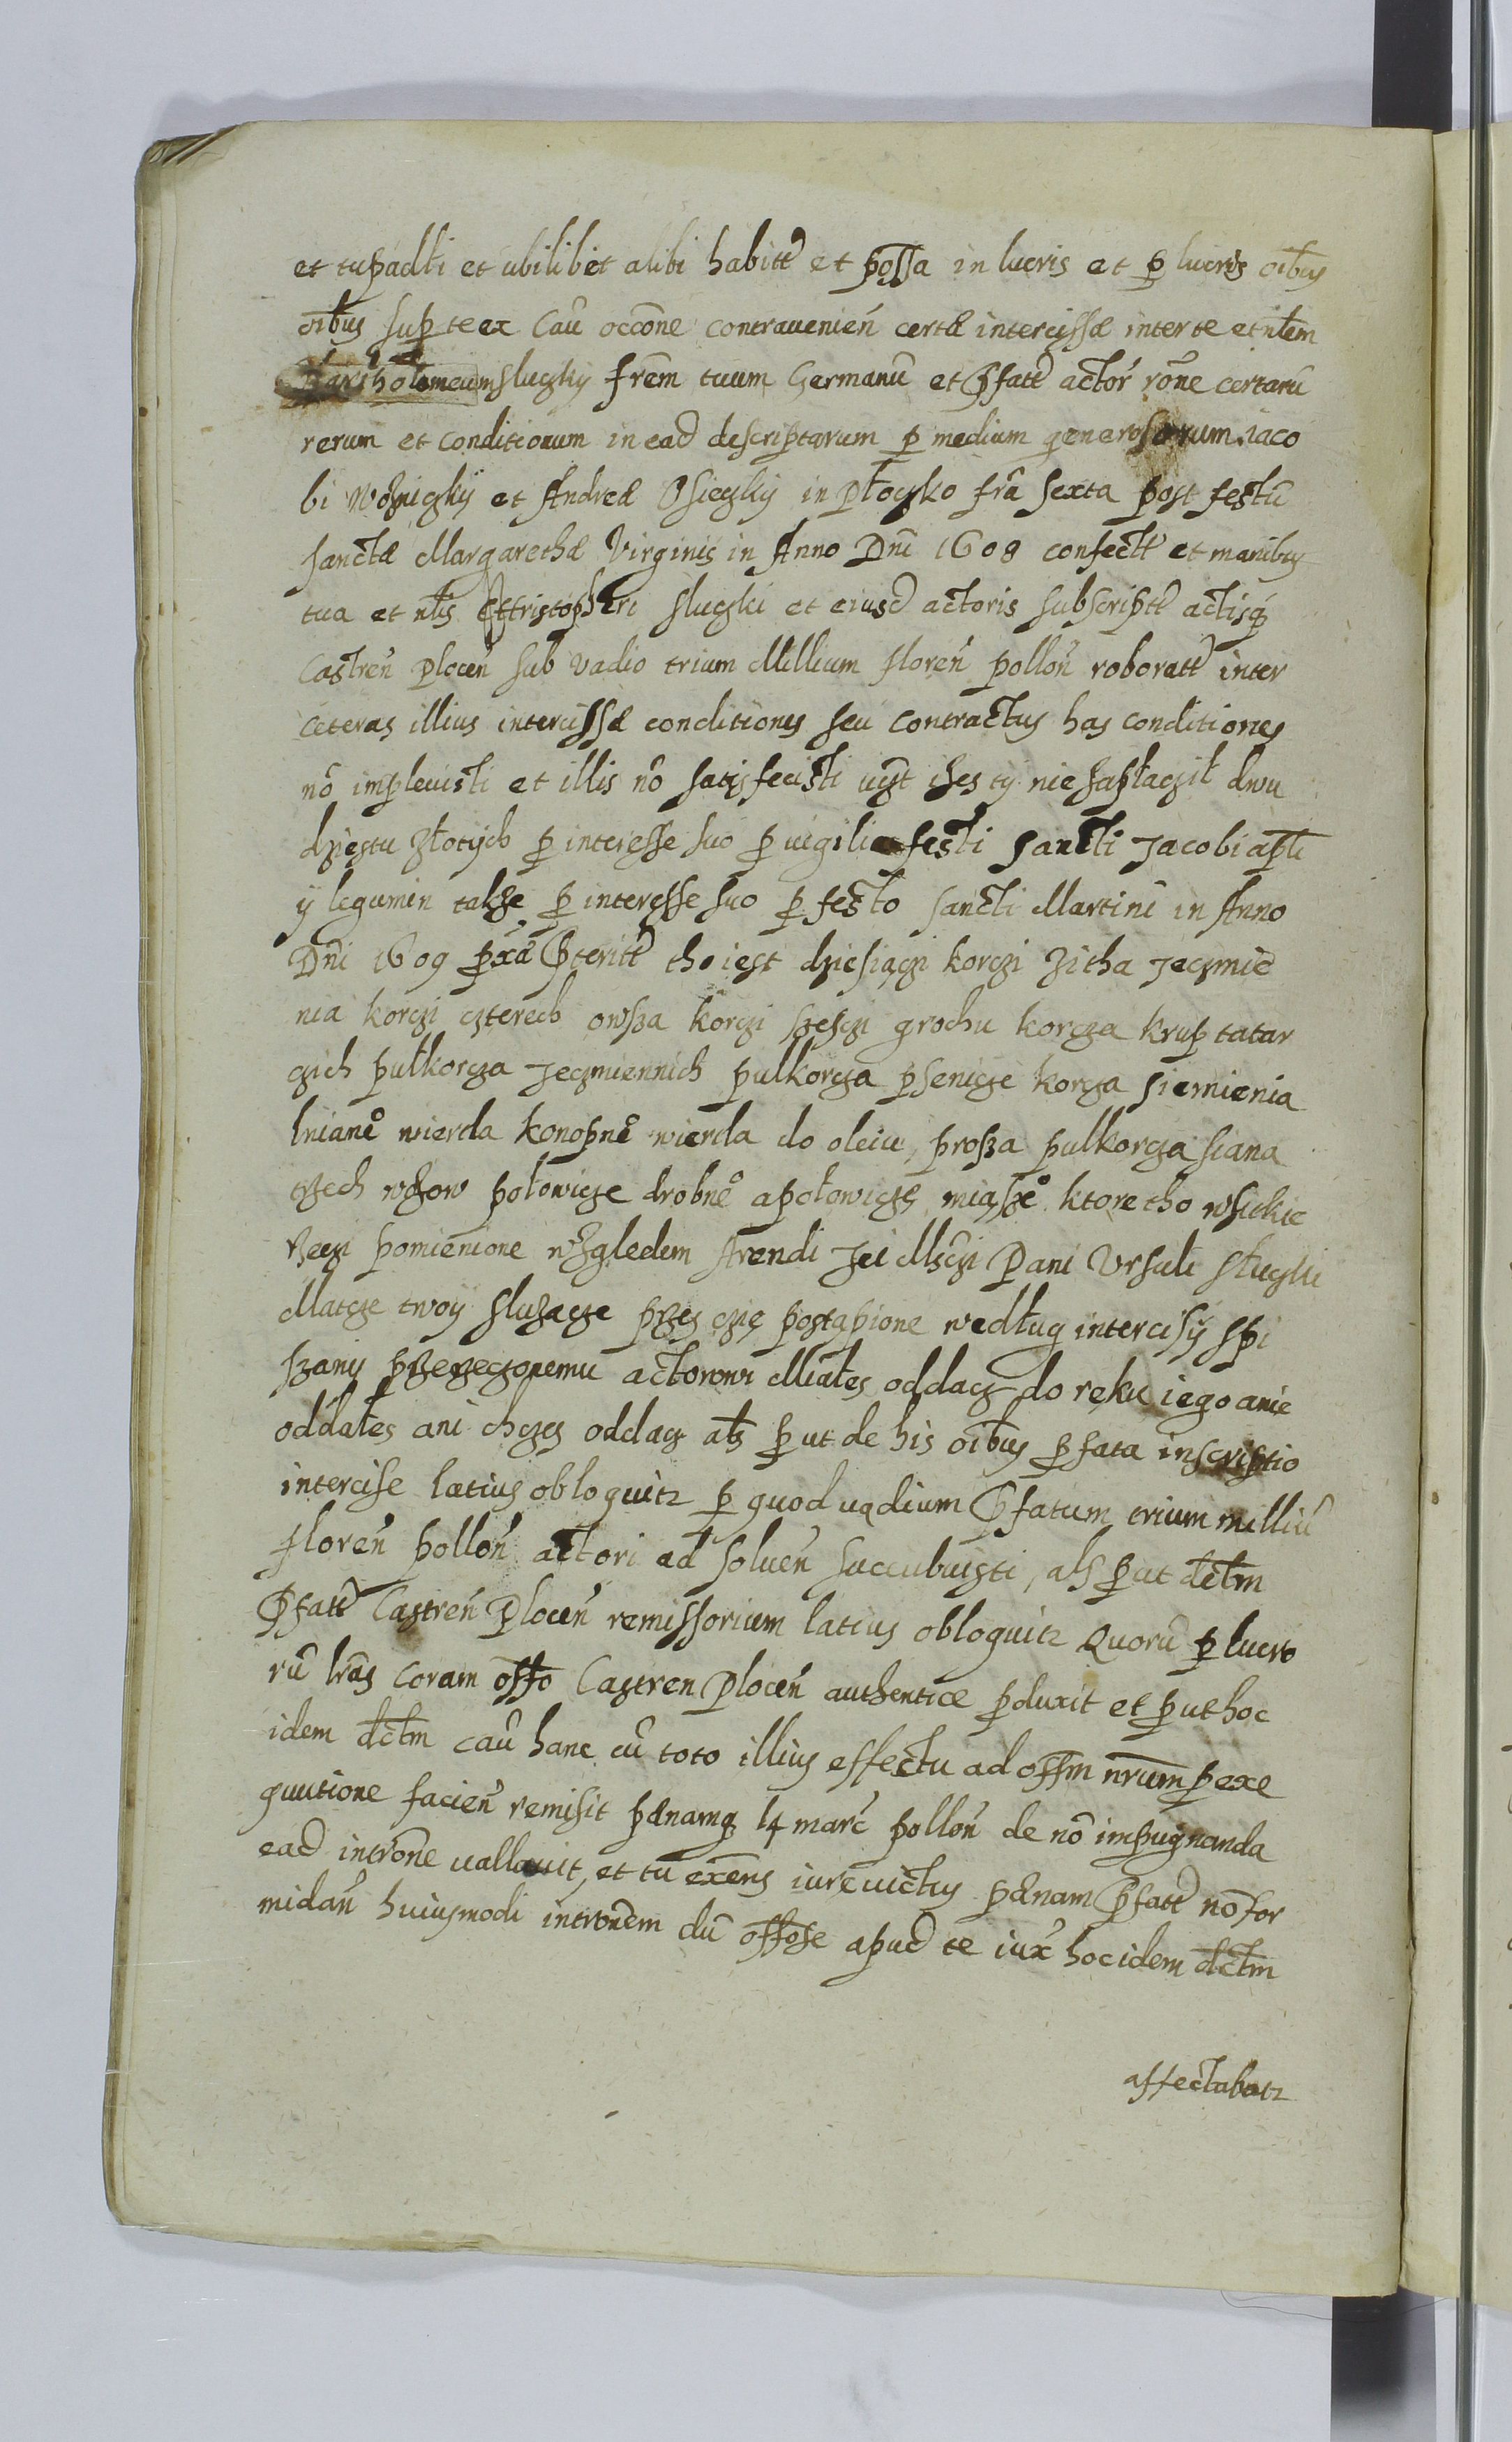 et tupadłi et ubilibet alibi habitt et possa in lucris et p lucris oibus
oibus sup te ex Cau occone contravenien certæ intercissæ inter te et nlem
Bartholomeum sluczky frem tuum Germanu et Pfatt actor rone certaru
rerum et conditionum in ead descriptarum p medium generosorum iaco
bi Woznigky et Andreæ Osieczky in Płoczko fra sexta post festu
sanctæ Margarethæ Virginis in Anno Dni 1608 confectt et manibus
tua et nlis Christopheri sluczki et eiusd actoris subscriptt actisq
Castren Plocen sub vadio trium Millium floren pollon roboratt inter
ceteras illius intercissæ conditiones seu contractus has conditiones
no implevisti et illis no satisfecisti ugt ises ty nie zapłacził dwu
dziestu złotych p interesse suo p vigilia festi sancti Jacobi apli
y legumin takze p interesse suo p festo sancti Martini in Anno
Dni 1609 pxa Pteritt tho iest dziesiączi korczi zitha Jeczmie
nia korczi czterech owsza korczi szesczi grochu korcza krup tatar
czich pułkorcza Jeczmiennich pulkorcza psenicze korcza siemienia
lniane wierda konopne wierda do oleiu, prosza pulkorcza siana
trzech wozow połowicze drobne a połowiczę miąsze ktore tho wsitkie
rzeczi pomienione względem Arendi Jei Msczi Pani Ursuli słuczki
Matcze twoy sluzacze przes czię postąpione według intercisÿ spi
szany przerzeczonemu actorowi Miałes oddacz do reku iego anie
oddałes ani chczes oddacz als p ut de his oibus pfata inscriptio
intercise latius obloquitr p quod vadium Pfatum trium milliu
floren pollon actori ad soluen succubuisti, als put dctm
Pfatt Castren Plocen remissorium latius obloquitr Quoru p lucro
ru lras coram offo Castren Plocen authentice pduxit et put hoc
idem dctm cau hanc cu toto illius effectu ad offm nrum p exe
quutione facien remisit pænamq 14 marc pollon de no impugnanda
ead introne vallavit, et tu exens iure victus pænam Pfatt no for
midan huiusmodi intronem du offose apud te iux hoc idem dctm
affectabatr